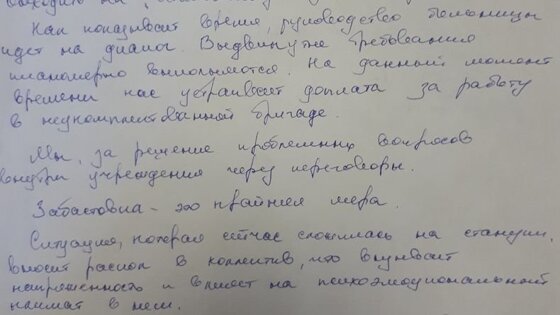 Как показывает время, руководство больницы
идет на диалог. Выдвинутые требования
планомерно выполняются. На данный момент
времени нас устраивает доплата за работу
в неукомплектованной бригаде.
Мы, за решение проблемных вопросов
внутри учреждения через переговоры.
Забастовка - это крайняя мера.
Ситуация, которая сейчас сложилась на станции,
вносит раскол в коллектив, что вызывает
напряженность и влияет на психоэмоциональный
климат в нем.